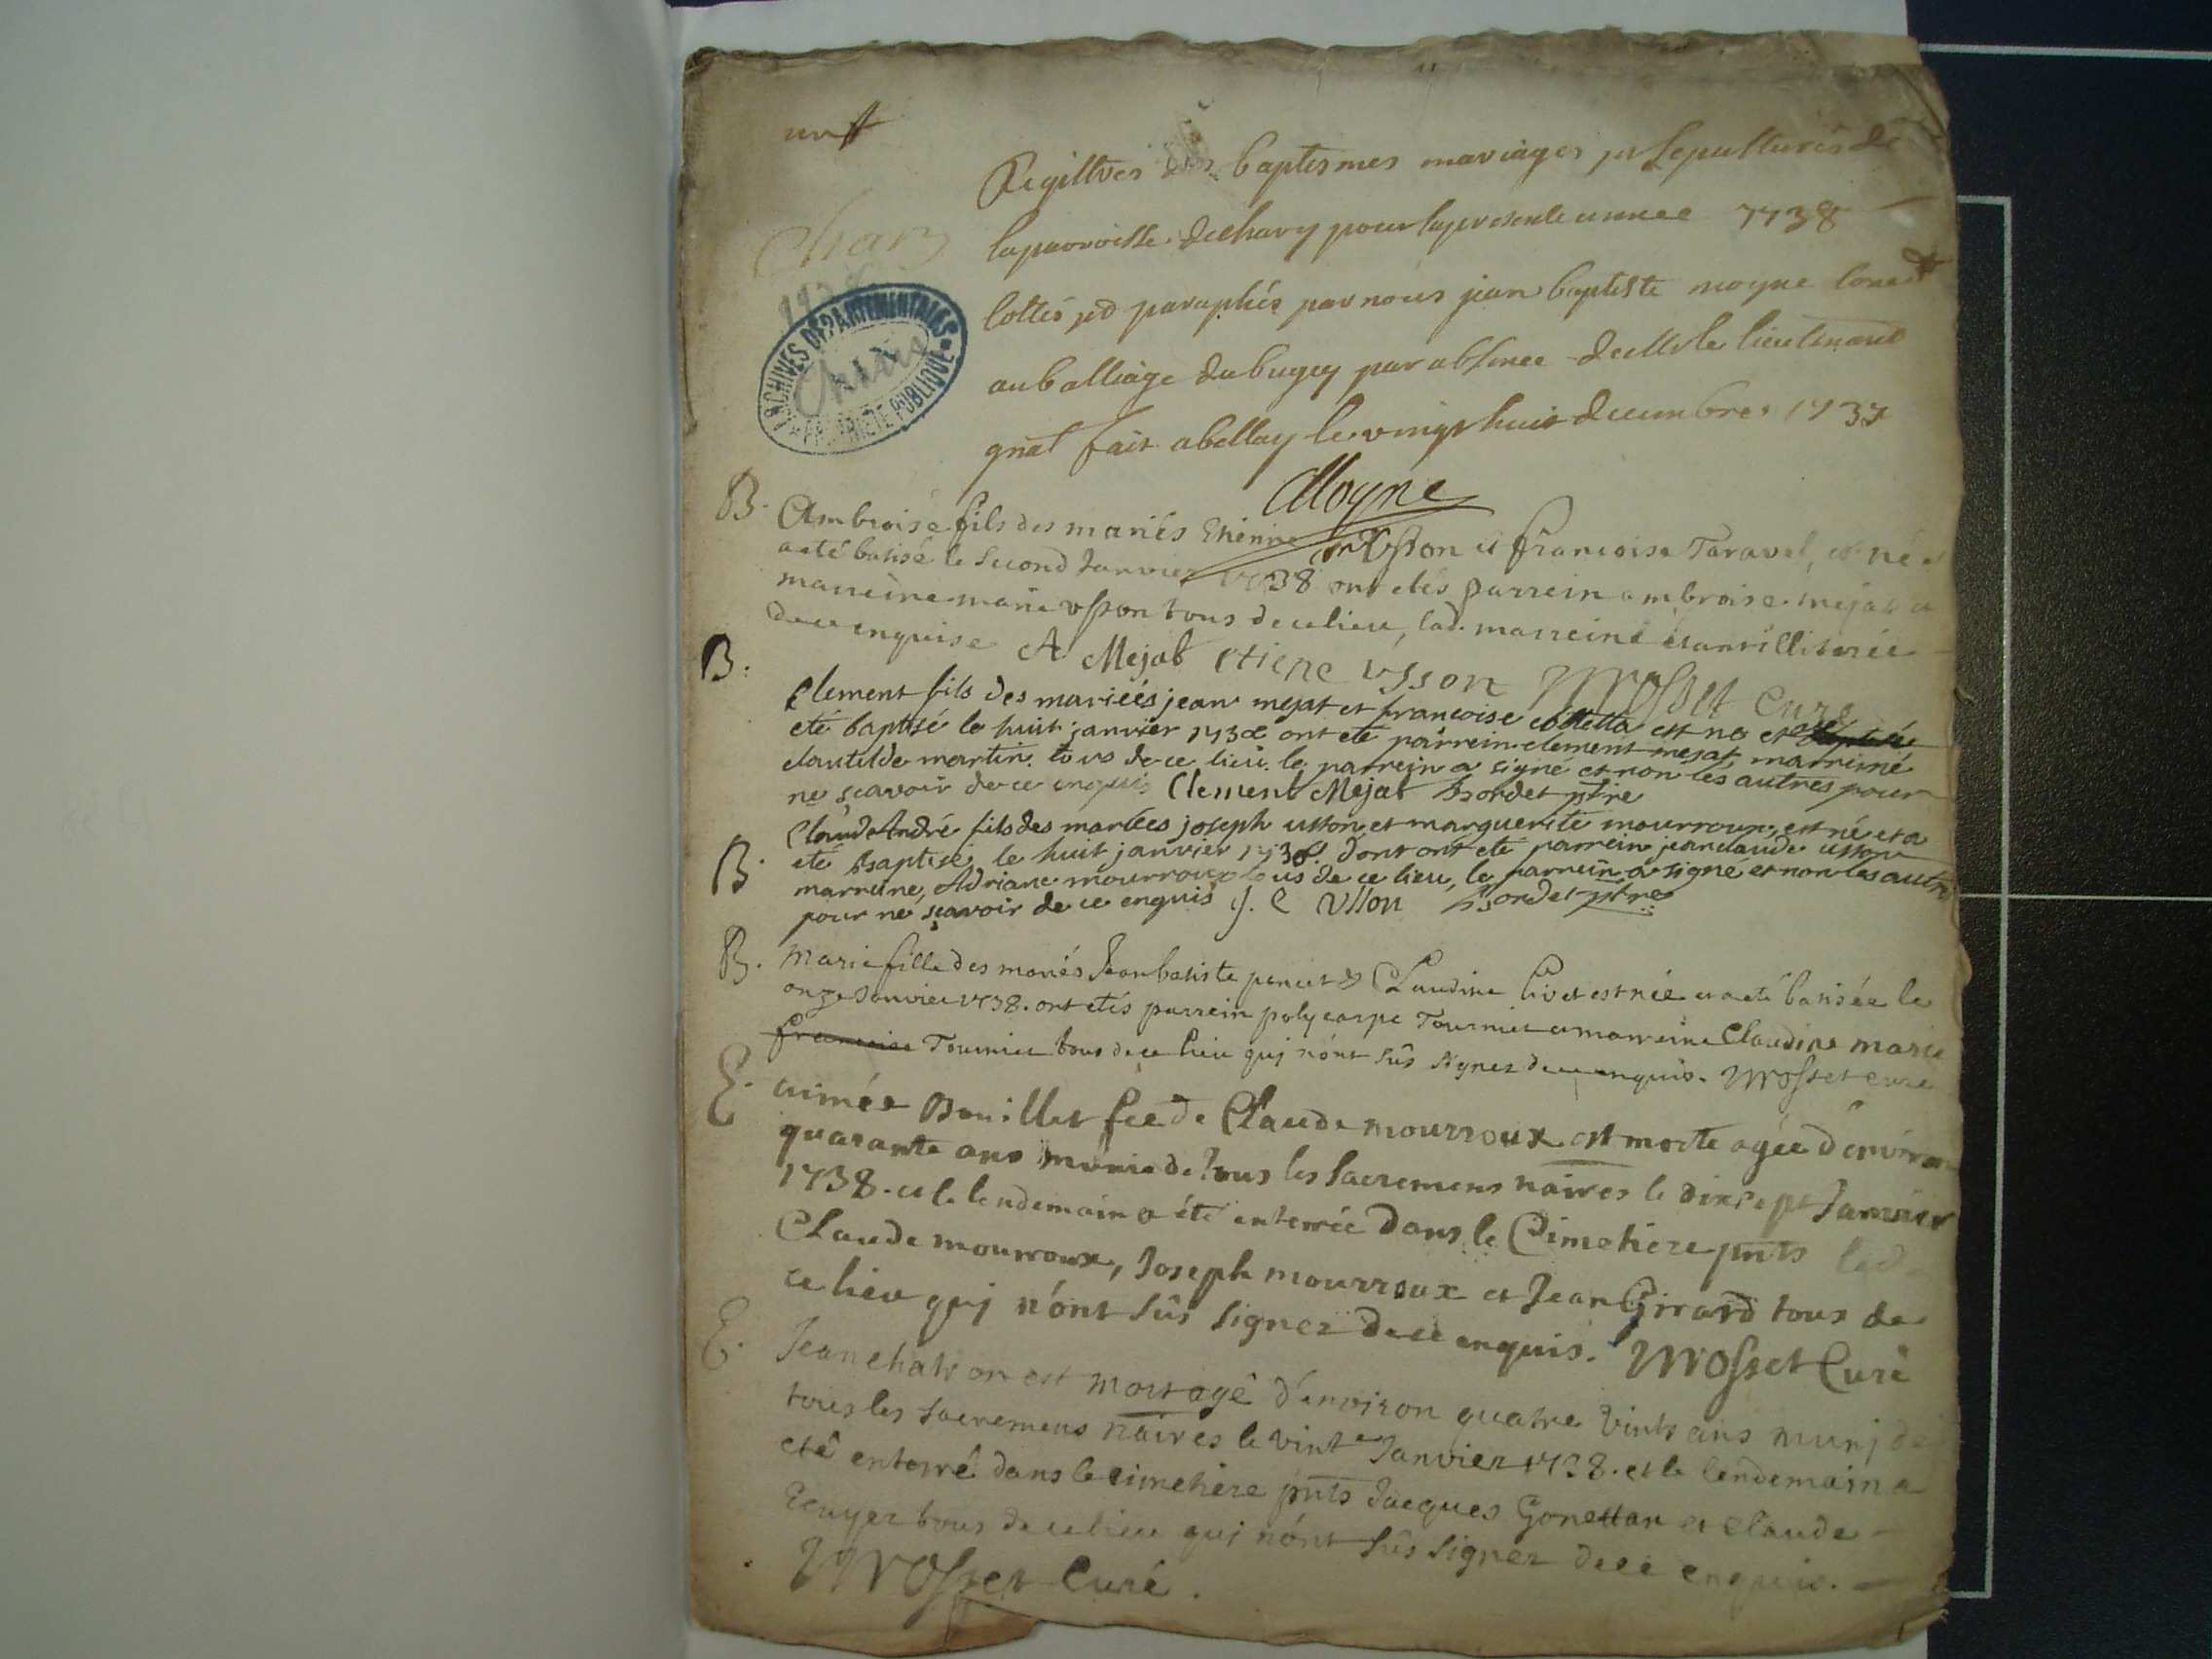 un
Registres des baptesmes mariages et sepultures de
Chary
la parroisse de chary pour la presente annee 1738
1738
cottés et paraphés par nous jean baptiste moyne
ARCHIVES DÉPARTEMENTALES
PROPRIÉTÉ PUBLIQUE
au balliage du bugey par absence de Mr le lieutenant
gnal fait a bellay le vingt huit decembre 1737
Moyne
B. Ambroise fils des mariés Etienne Usson et francoise Taravel, est né et
a eté batisé le second Janvier 1738 ont etés parrein ambroise mejat et
marreine marie usson tous de ce lieu, lad. marreine etant illiterée
de ce enquise A Mejat etiene usson Mrosset curé
B. Clement fils des mariées jean mejat et francoise est né et a
eté baptisé le huit janvier 1738 ont eté parrein clement mejat, marreine
clautilde martin. tous de ce lieu. le parrein a signé et non les autres pour
ne sçavoir de ce enquis Clement Mejat Bordet ptre
B. Claude André fils des mariées joseph usson et marguerite mourroux, est né et a
eté baptisé le huit janvier 1738. dont ont eté parrein jean claude usson
marreine, Adriane mourroux tous de ce lieu, le parrein a signé et non les autres
pour ne sçavoir de ce enquis J. C Usson Bordet ptre
B. Marie fille des mariés Jean batiste pancet & Claudine livet est née et a eté batisée le
onze Janvier 1738. ont etés parrein polycarpe Tournier et marreine Claudine marie
francoise Tournier tous de ce lieu qui n'ont sûs signer de ce enquis. Mrosset curé
E. aimée Bouillet fee de Claude mourroux est morte agée d'environ
quarante ans munie de tous les sacremens naires le dixsept Janvier
1738. et le lendemain a été enterrée dans le Cimetiere pnts led.
Claude mourroux, Joseph mourroux et Jean Girard tous de
ce lieu qui n'ont sûs signer de ce enquis. Mrosset Curé
E. Jean chatron est mort agé d'environ quatre vints ans muni de
tous les sacremens naires le vint Janvier 1738. et le lendemain a
eté enterré dans le cimetiere pnts Jacques Gonettan et Claude
Ecuyer tous de ce lieu qui n'ont sûs signer de ce enquis.
Mrosset Curé.